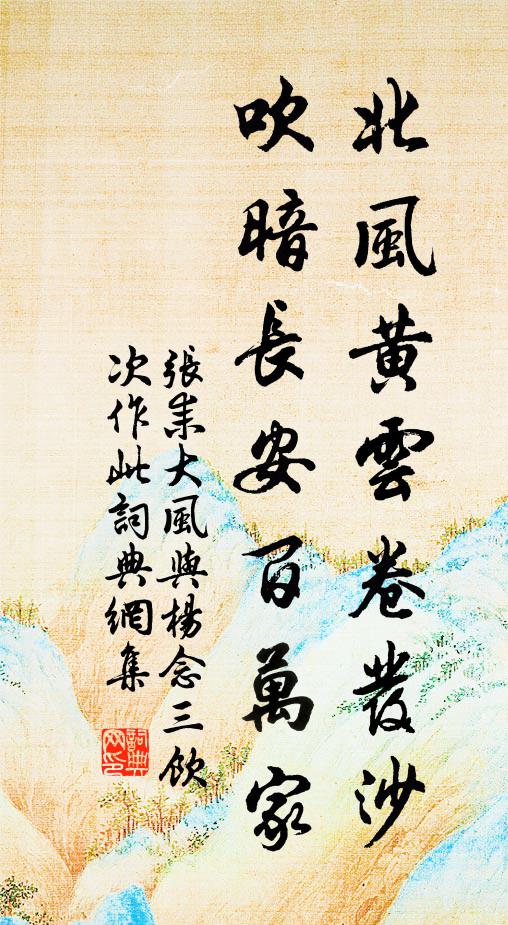 北風黃雲卷發沙
吹暗長安百萬家
張耒大風與楊念三飲
次作此詞典網集
詞典網印